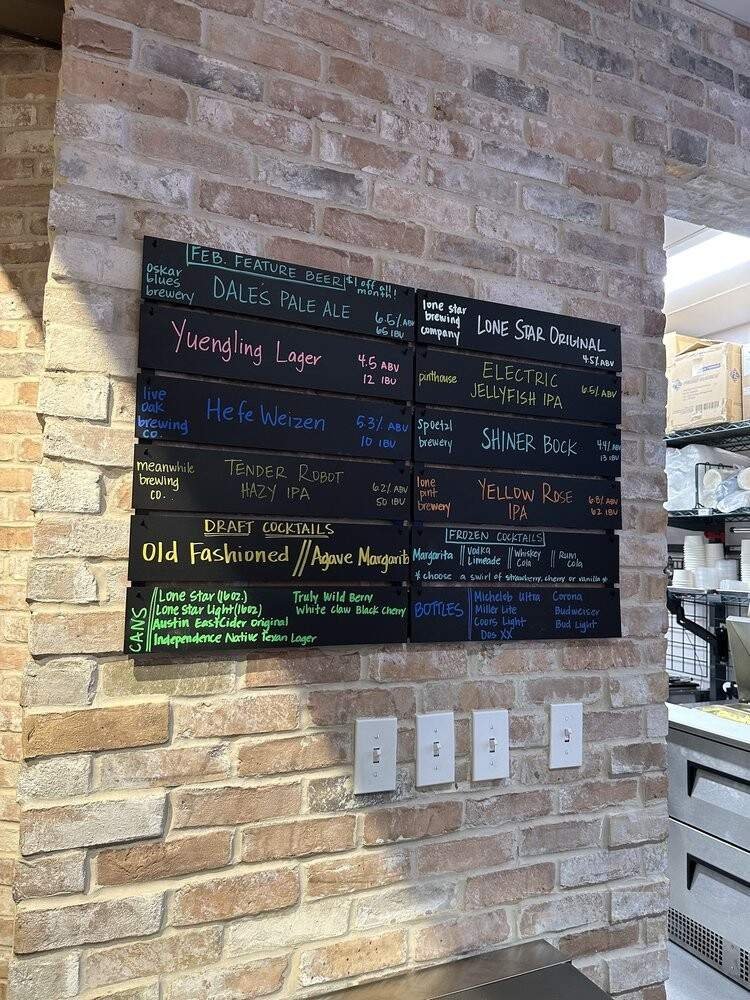 FEB. FEATURE BEER
$1 off all month!
oskar blues brewery
DALE'S PALE ALE
6.5% ABV
65 IBU
Yuengling Lager
4.5 ABV
12 IBU
live oak brewing co.
Hefe Weizen
5.3% ABV
10 IBU
meanwhile brewing co.
TENDER ROBOT
HAZY IPA
6.2% ABV
50 IBU
DRAFT COCKTAILS
Old Fashioned // Agave Margarita
CANS
Lone Star (16oz.)
Lone Star Light (16oz)
Austin EastCider Original
Independence Native Texan Lager
Truly Wild Berry
White Claw Black Cherry
lone star brewing company
LONE STAR ORIGINAL
4.5% ABV
pinthouse
ELECTRIC
JELLYFISH IPA
6.5% ABV
spoetzl brewery
SHINER BOCK
4.4% ABV
13 IBU
lone pint brewery
YELLOW ROSE
IPA
6.8% ABV
62 IBU
FROZEN COCKTAILS
Margarita || Vodka Limeade || Whiskey Cola || Rum Cola
* choose a swirl of strawberry, cherry or vanilla *
BOTTLES
Michelob Ultra
Miller Lite
Coors Light
Dos XX
Corona
Budweiser
Bud Light